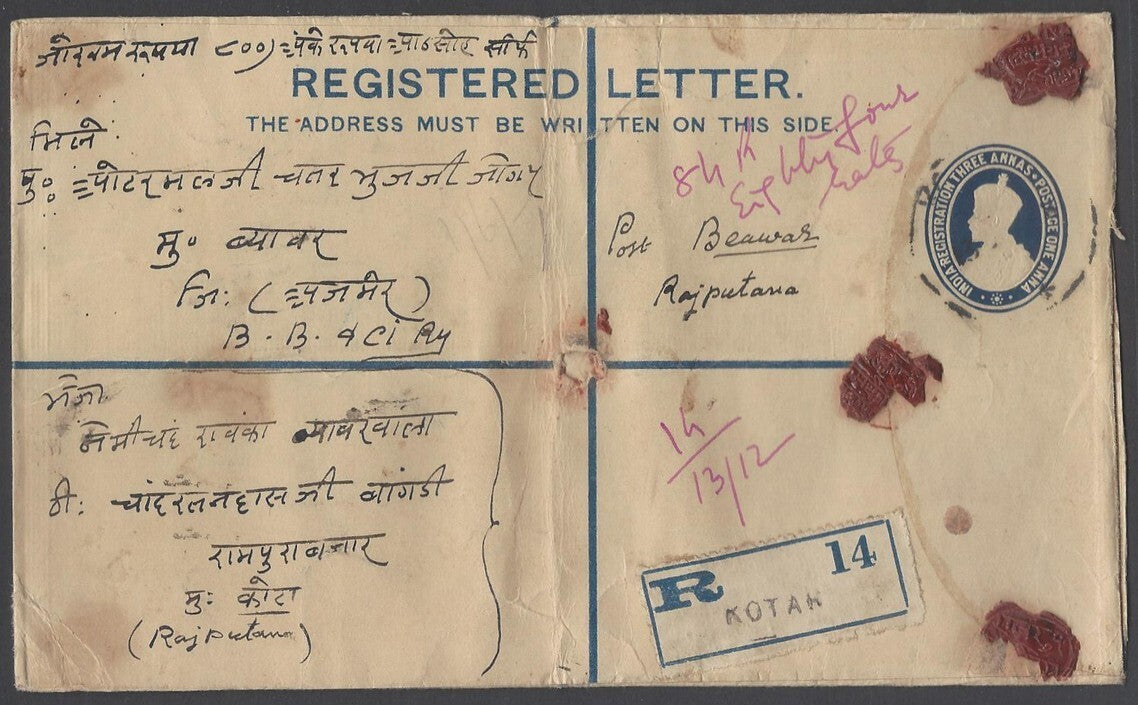 जोखम रूपया ८००)
REGISTERED LETTER.
THE ADDRESS MUST BE WRITTEN ON THIS SIDE.
मिले
मु॰ ब्यावर
जि: (अजमेर)
B. B. & CI Ry
84 R
Eighty four
Post Beawar
Rajputana
INDIA REGISTRATION THREE ANNAS · POSTAGE ONE ANNA
नेमीचंद रावका ब्यावरवाला
ठी: चांदरतनदास जी बांगडी
रामपुरा बजार
मु: कोटा
(Rajputana)
14
13/12
R 14
KOTAH